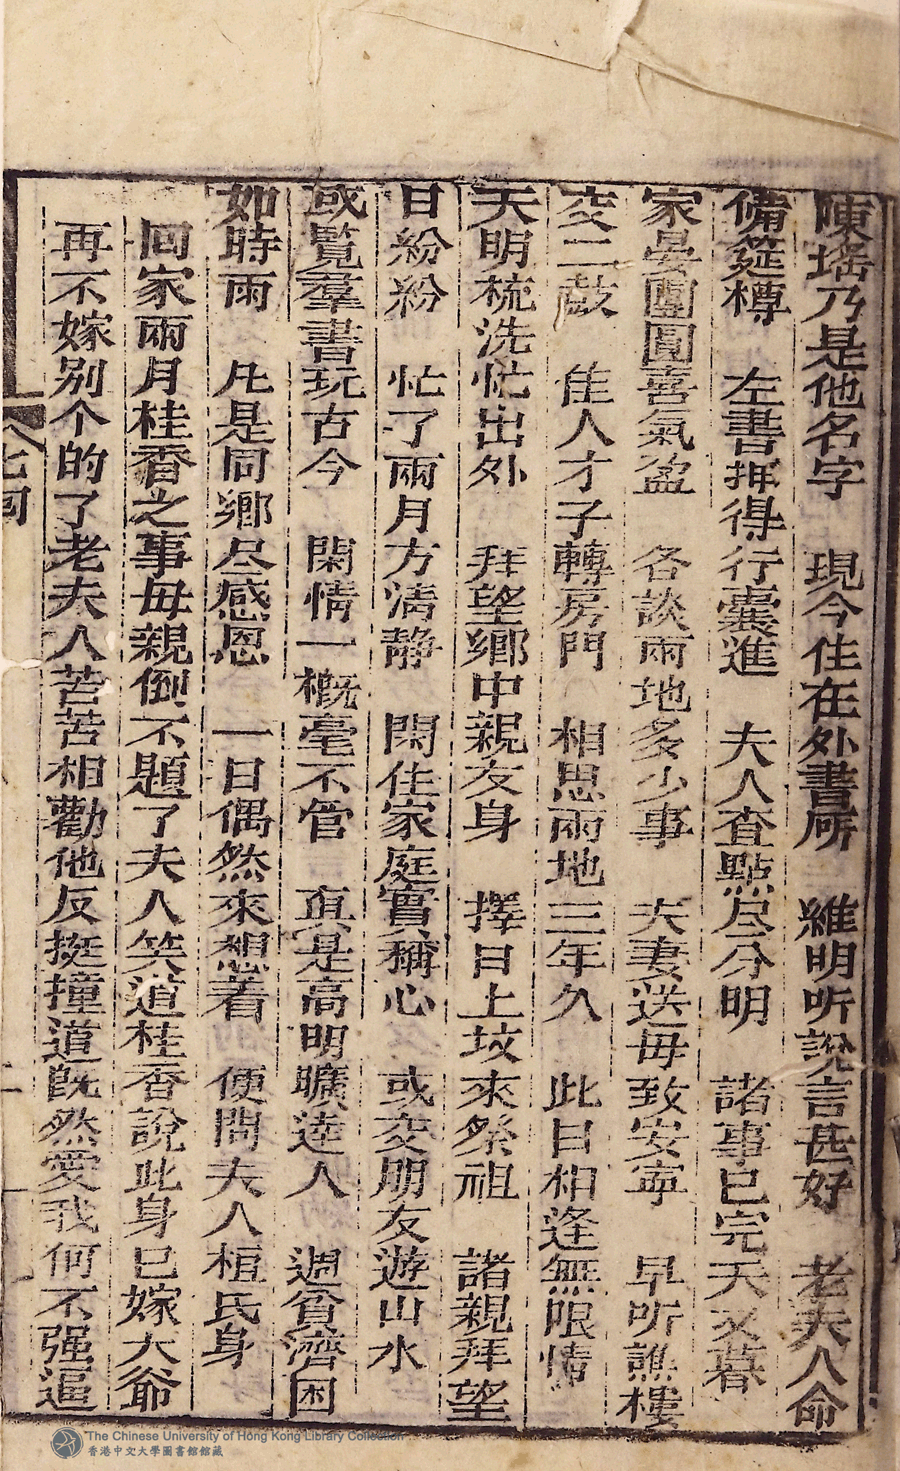 陳瑤乃是他名字　現今住在外書所　維明听說言甚好　老夫人命
備筵樽　左書押得行囊進　夫人查點尽分明　諸事已完天又暮
家晏團圓喜氣盈　各談兩地多少事　夫妻送母致安寧　早听譙樓
交二鼓　隹人才子轉房門　相思兩地三年久　此日相逢無限情
天明梳洗忙出外　拜望鄉中親友身　擇日上坟來祭祖　諸親拜望
日紛紛　忙了兩月方清静　閑住家庭實稱心　或交朋友遊山水
或覧羣書玩古今　閑情一概毫不管　真是高明曠達人　週貧濟困
如時雨　凡是同鄉尽感恩　一日偶然來想着　便問夫人桓氏身
回家兩月桂香之事毋親倒不題了夫人笑道桂香說此身已嫁大爺
再不嫁别个的了老夫人苦苦相勸他反挺撞道既然愛我何不强逼
七回
The Chinese University of Hong Kong Library Collection
香港中文大學圖書館館藏